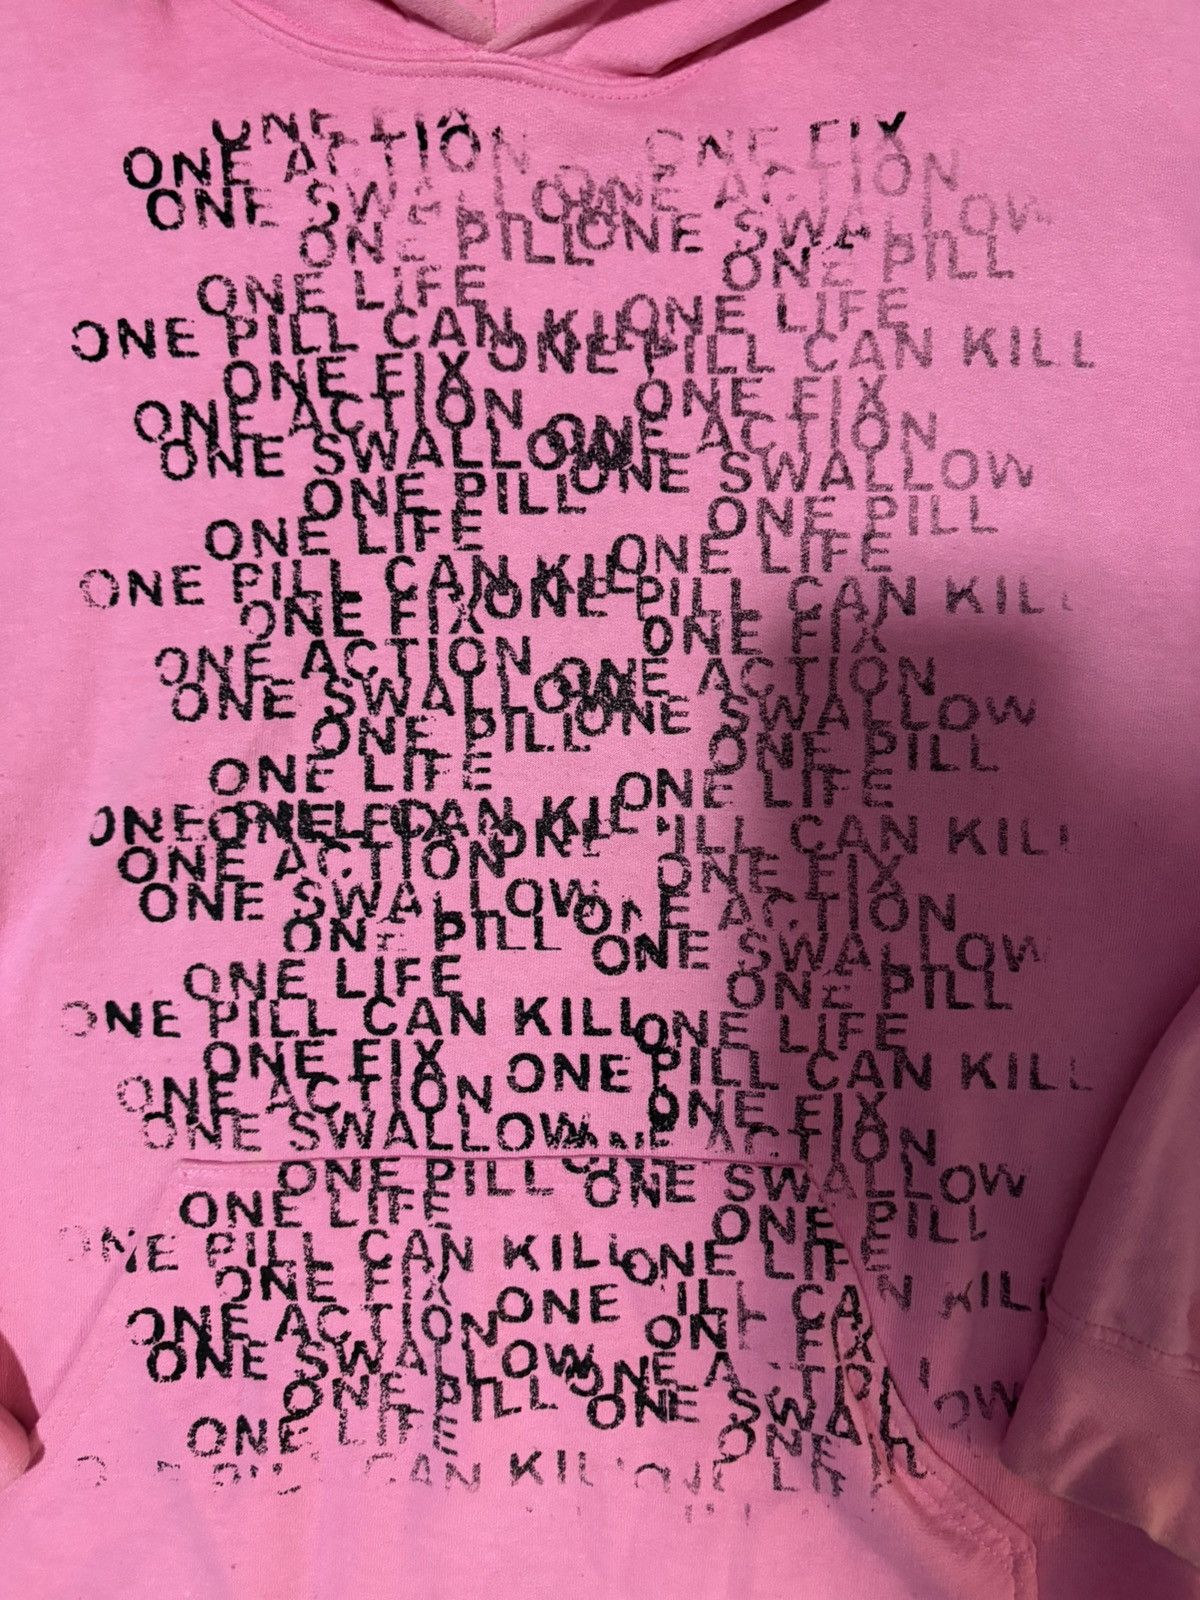 ONE FIX
ONE ACTION ONE ACTION
ONE ONE SWALLOW
ONE PILL ONE PILL
ONE LIFE ONE LIFE
ONE PILL CAN KILL ONE PILL CAN KILL
ONE FIX ONE FIX
ONE ACTION ONE ACTION
ONE SWALLOW ONE SWALLOW
ONE PILL ONE PILL
ONE LIFE ONE LIFE
ONE PILL CAN KILL ONE PILL CAN KILL
ONE FIX ONE FIX
ONE ACTION ONE ACTION
ONE SWALLOW ONE SWALLOW
ONE PILL ONE PILL
ONE LIFE ONE LIFE
ONE CAN KILL ONE PILL CAN KILL
ONE ACTION ONE FIX
ONE SWALLOW ONE ACTION
ONE PILL ONE SWALLOW
ONE LIFE ONE PILL
ONE PILL CAN KILL ONE LIFE
ONE FIX ONE PILL CAN KILL
ONE ACTION ONE FIX
ONE SWALLOW ONE ACTION
ONE PILL ONE SWALLOW
ONE LIFE ONE PILL
ONE PILL CAN KILL ONE LIFE
ONE FIX ONE PILL CAN KILL
ONE ACTION ONE FIX
ONE SWALLOW ONE ACTION
ONE PILL ONE SWALLOW
ONE LIFE ONE
CAN KILL ONE LIFE